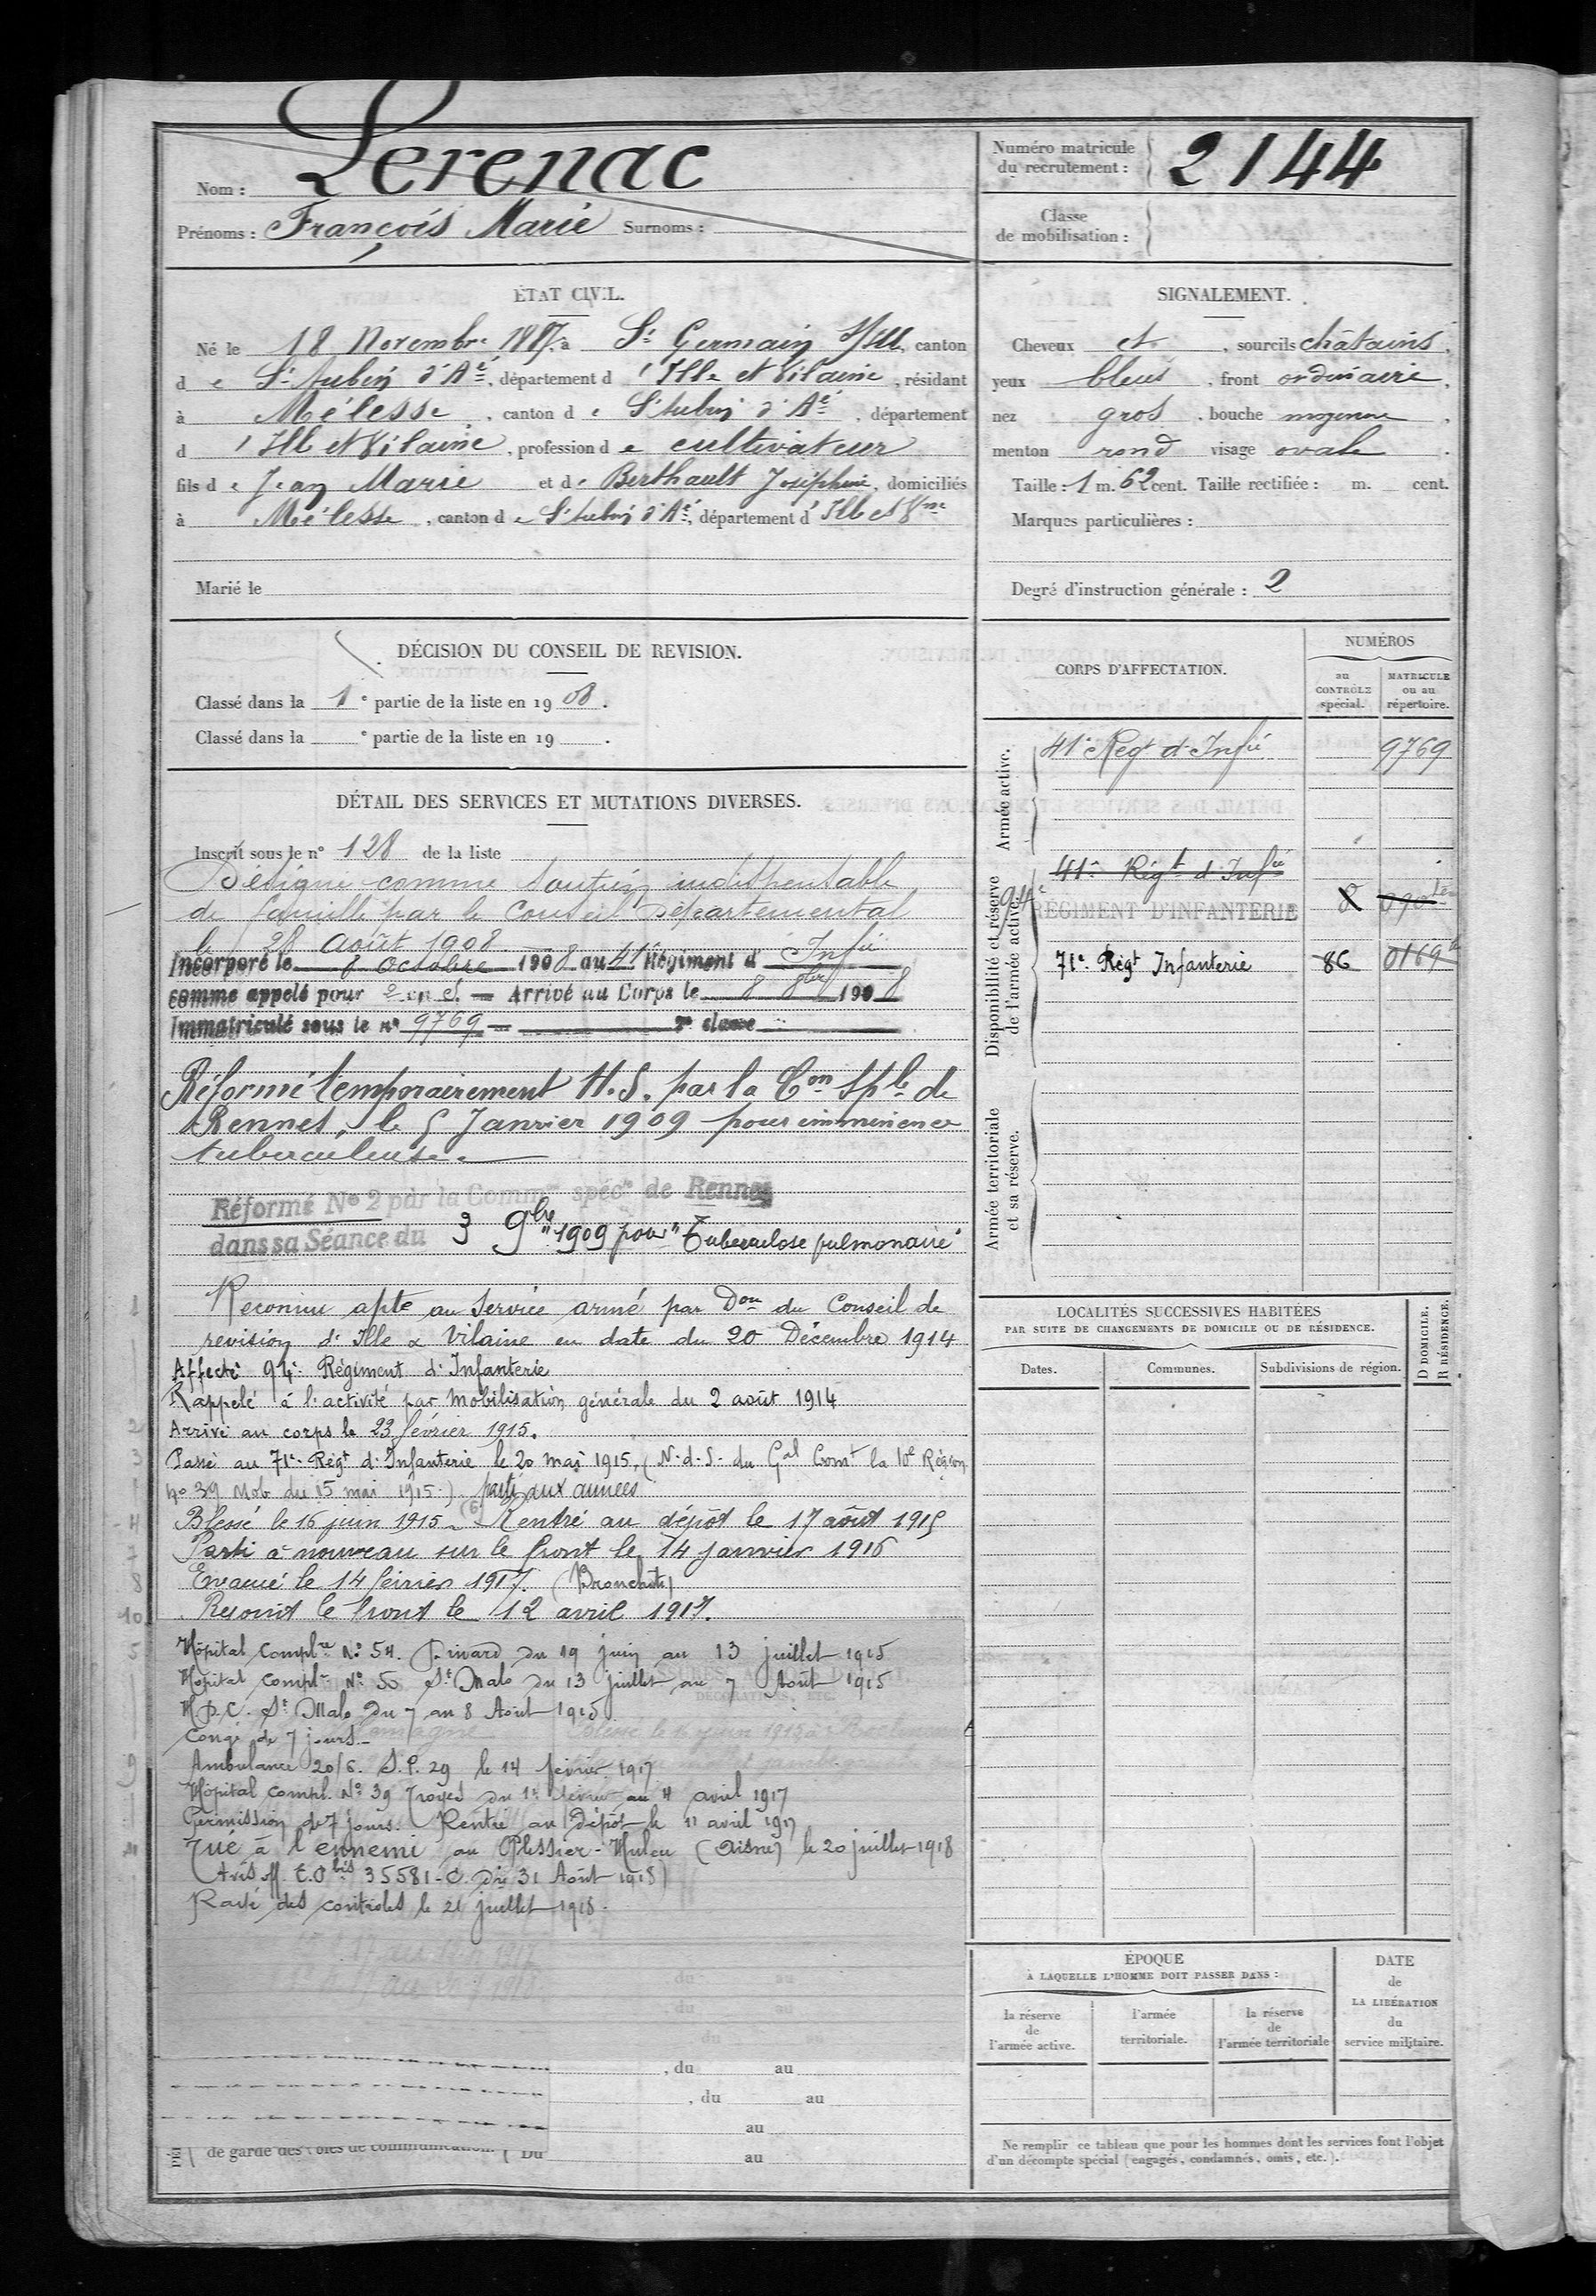 Nom : Lerenac
Prénoms : François Marie Surnoms :
Numéro matricule
du recrutement : 2144
Classe
de mobilisation :
ÉTAT CIVIL.
Né le 18 Novembre 1887, à St Germain s/Ill, canton
de St Aubin d'Aé, département d'Ille et Vilaine, résidant
à Mélesse, canton de St Aubin d'Aé, département
d'Ill et Vilaine, profession de cultivateur
fils de Jean Marie et de Berthault Joséphine, domiciliés
à Mélesse, canton de St Aubin d'Aé, département d'Ill et Vne
Marié le
SIGNALEMENT.
Cheveux et, sourcils châtains,
yeux bleus, front ordinaire,
nez gros, bouche moyenne,
menton rond visage ovale.
Taille : 1 m. 62 cent. Taille rectifiée : m. cent.
Marques particulières :
Degré d'instruction générale : 2
DÉCISION DU CONSEIL DE REVISION.
Classé dans la 1e partie de la liste en 1908.
Classé dans la e partie de la liste en 19 .
DÉTAIL DES SERVICES ET MUTATIONS DIVERSES.
Inscrit sous le n° 128 de la liste
Désigné comme soutien indispensable
de famille par le Conseil Départemental
le 28 Août 1908
Incorporé le 8 octobre 1908 au 41 Régiment d'Infie
comme appelé pour 2 — Arrivé au Corps le 8 8bre 1908
Immatriculé sous le n° 9769 — 2e classe
Réformé temporairement H.S. par la Con Sple de
Rennes, le 5 Janvier 1909 pour imminence
tuberculeuse.
Réformé No 2 par la Common spécle de Rennes
dans sa Séance du 3 9bre 1909 pour "Tuberculose pulmonaire"
Reconnu apte au Service armé par Don du Conseil de
revision d'Ille & Vilaine en date du 20 Décembre 1914
Affecté 94e Régiment d'Infanterie
Rappelé à l'activité par Mobilisation générale du 2 août 1914
Arrivé au corps le 23 février 1915.
Passé au 71e Régt d'Infanterie le 20 mai 1915, (N.d.S. du Gal Comt la 10e Région
no 39 Mob du 15 mai 1915.) parti aux armées
Blessé le 16 juin 1915 (6) Rentré au dépôt le 17 août 1915
Parti à nouveau sur le front le 14 janvier 1916
Evacué le 14 février 1917. (Bronchite)
Rejoint le front le 12 avril 1917.
Hôpital complre No 54. Dinard du 19 juin au 13 juillet 1915
Hôpital complre No 50 St Malo du 13 juillet au 7 Août 1915
H.D.C. St Malo du 7 au 8 Août 1915
Congé de 7 jours.
Ambulance 20/6. S.P. 29 le 14 février 1917
Hôpital compl. No 39 Troyes du février au 4 avril 1917
Permission de 7 jours. Rentré au Dépôt le 11 avril 1917
Tué à l'ennemi au Plessier-Huleu (Aisne) le 20 juillet 1918
(Avis off. 35581-C. du 31 Août 1918)
Rayé des contrôles le 21 juillet 1918.
du au
, du au
du au
, du au
, du au
au
de garde des voies de communication. ( Du
au
CORPS D'AFFECTATION.
NUMÉROS
au
CONTRÔLE
spécial.
MATRICULE
ou au
répertoire.
Armée active.
41e Régt d'Infie 9769
Disponibilité et réserve
de l'armée active.
41e Régt d'Infie
94e RÉGIMENT D'INFANTERIE
71e Régt Infanterie 86 0169
Armée territoriale
et sa réserve.
LOCALITÉS SUCCESSIVES HABITÉES
PAR SUITE DE CHANGEMENTS DE DOMICILE OU DE RÉSIDENCE.
D DOMICILE.
R RÉSIDENCE.
Dates. Communes. Subdivisions de région.
ÉPOQUE
À LAQUELLE L'HOMME DOIT PASSER DANS :
la réserve
de
l'armée active.
l'armée
territoriale.
la réserve
de
l'armée territoriale
DATE
de
LA LIBÉRATION
du
service militaire.
Ne remplir ce tableau que pour les hommes dont les services font l'objet
d'un décompte spécial (engagés, condamnés, omis, etc.).